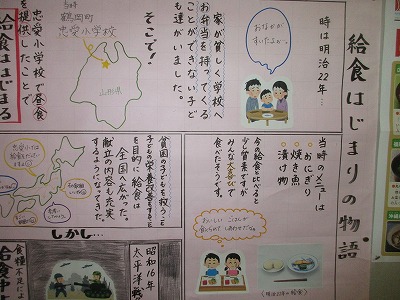 給食はじまりの物語
時は明治22年…
おなかが
すいたよぉ…
家が貧しく学校へ
お弁当を持ってくる
ことができない子ど
も達がいました。
そこで!
当時
鶴岡町
忠愛小学校
山形県
忠愛小学校で昼食
を提供したことで
給食はじまる
当時のメニューは
おにぎり
焼き魚
漬け物
今の給食と比べると
少し質素ですが
みんな大喜びで
食べたそうです。
おいしい ごはんが
食べられて しあわせだなぁ
(明治22年の給食)
貧困の子どもを救うこと
子どもの栄養改善をすること
を目的に給食は
全国へ広がった。
献立の内容も充実
するようになってきた。
しかし…
昭和16年
太平洋戦
食糧不足によ
給食中止